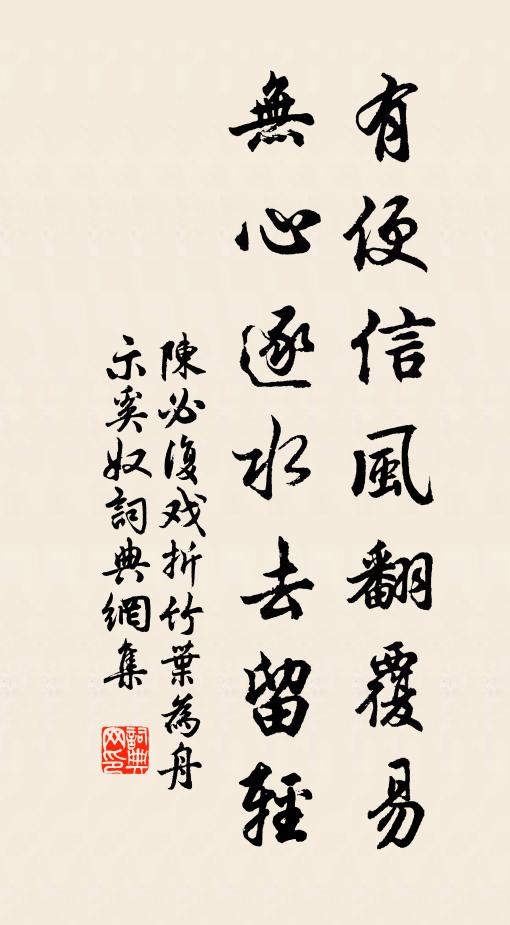 有便信風翻覆易
無心逐水去留輕
陳必復戏折竹葉為舟
示奚奴詞典網集
詞典网印